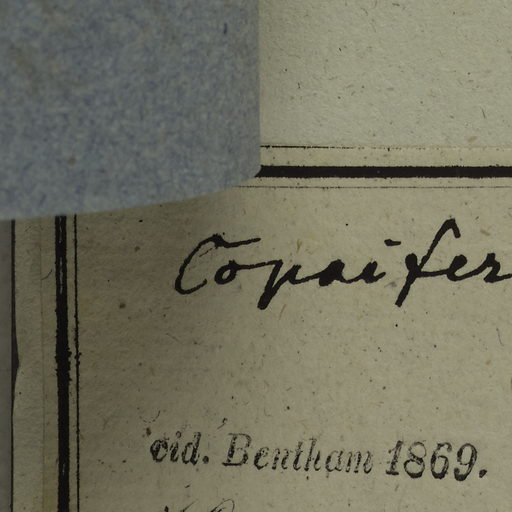 Copaifer
vid. Bentham 1869.